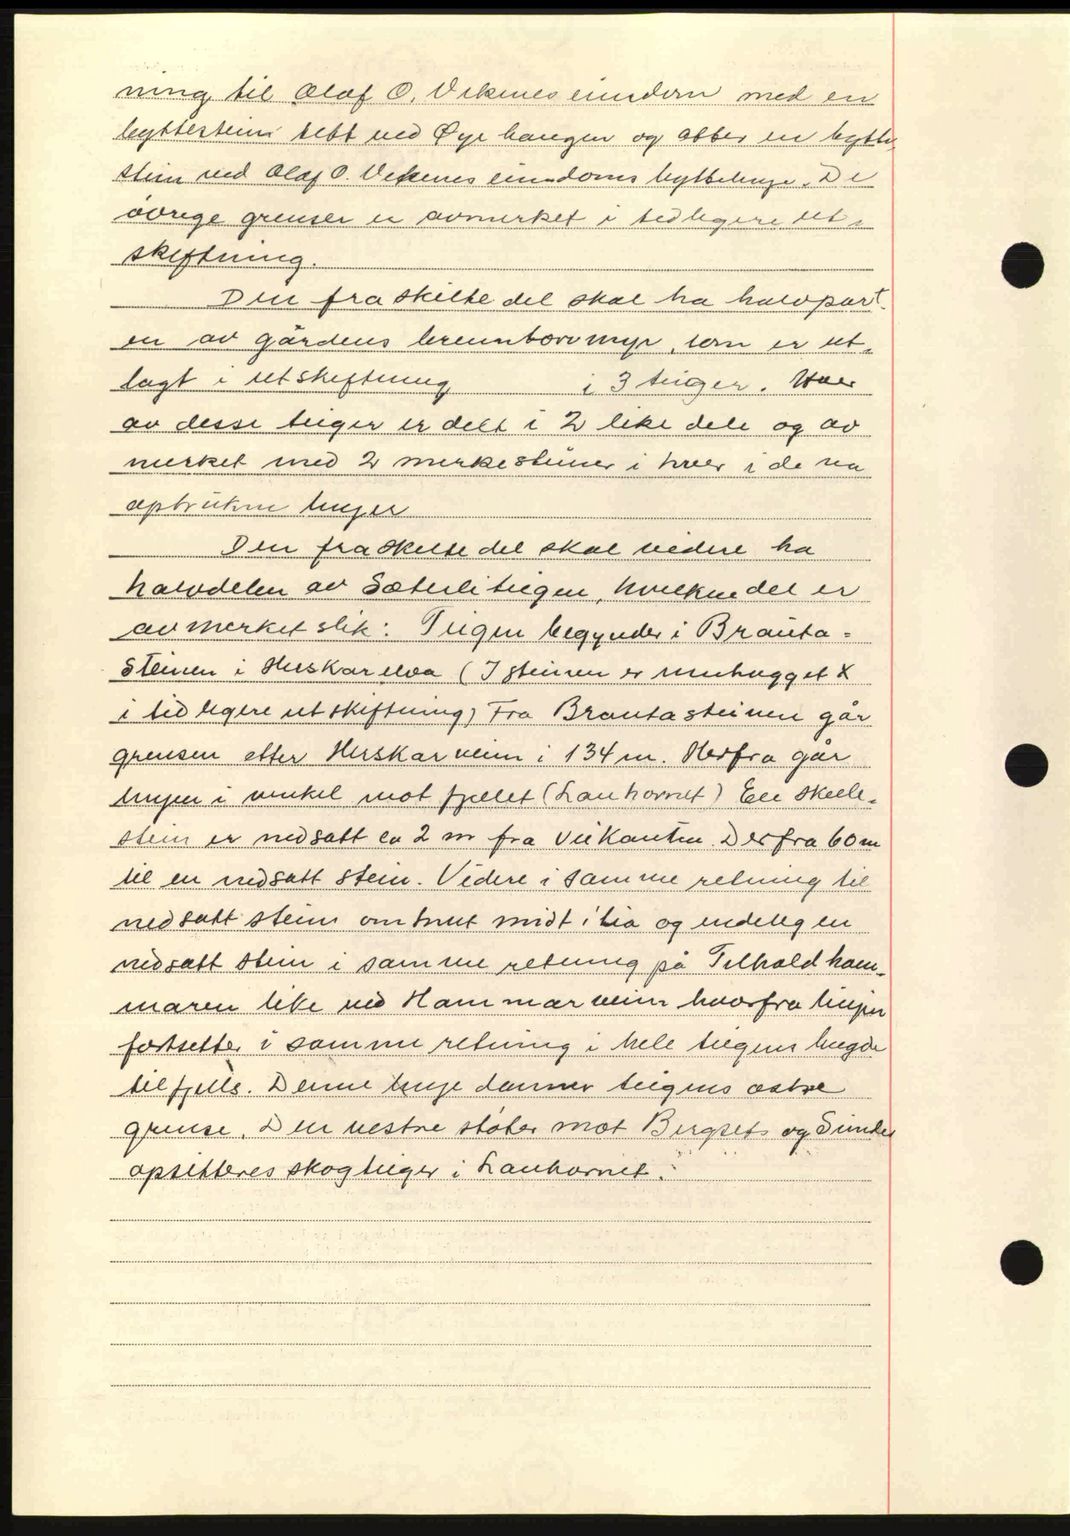 ning til Olaf O. Vikenes eiendom med en
byttestein tett ved Øye haugen og etter en bytte,
stein ved Olaf O. Vikenes eiendoms byttelinje. De
övrige grenser er avmerket i tidligere ut,
skiftning.
Den fraskilte del skal ha halvpart
en av gårdens brenntorvmyr, som er ut,
lagt i utskiftning i 3 teiger. Hver
av desse teiger er delt i 2 like dele og av
merket med 2 merkesteiner i hver i de nu
optrukne linjer
Den fraskilte del skal videre ha
halvdelen av Sæterliteigen, hvilken del er
avmerket slik: Teigen begynder i Brauta-
steinen i Huskarelva (I steinen er innhugget X
i tidligere utskiftning) Fra Brautasteinen går
grensen etter Huskarveien i 134 m. Herfra går
linjen i vinkel mot fjellet (Lauhornet) En skille,
stein er nedsatt ca 2 m fra veikanten. Derfra 60 m
til en nedsatt stein. Videre i samme retning til
nedsatt stein omtrent midt i lia og endelig en
nedsatt stein i samme retning på Tilhaldham,
maren like ved Hammarveien hvorfra linjen
fortsetter i samme retning i hele teigens lengde
tilfjells. Denne linje danner teigens østre
grense. Den vestre støter mot Bergsets og Sunde
opsitteres skogteiger i Lauhornet.